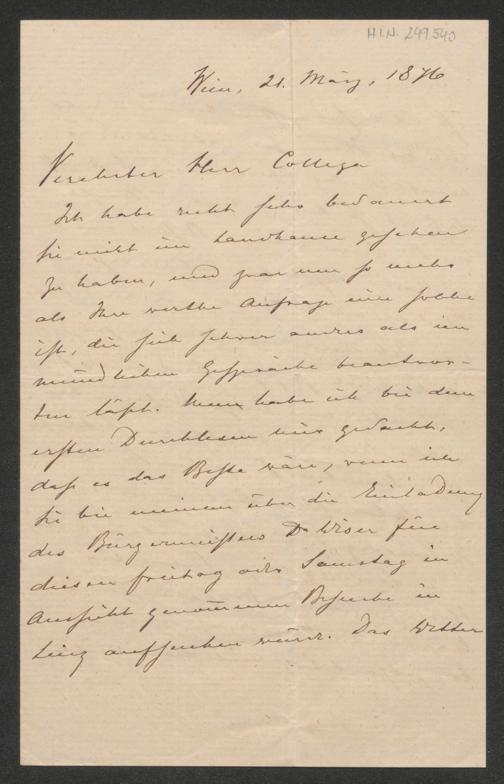 H.I.N. 249.540
Wien, 21. März, 1876
Verehrter Herr Collega
Ich habe recht sehr bedauert
Sie nicht im Landhause gesehen
zu haben, und zwar um so mehr
als Ihre werthe Anfrage eine solche
ist, die sich schwer anders als im
mündlichen Gespräche beantwor-
ten läßt. Nun habe ich bei dem
ersten Durchlesen mir gedacht,
daß es das Beste wäre, wenn ich
Sie bei meinem über die Einladung
des Bürgermeisters Dr Wiser für
diesen Freitag oder Samstag in
Aussicht genommenen Besuche in
Linz aufsuchen würde. Das Wetter